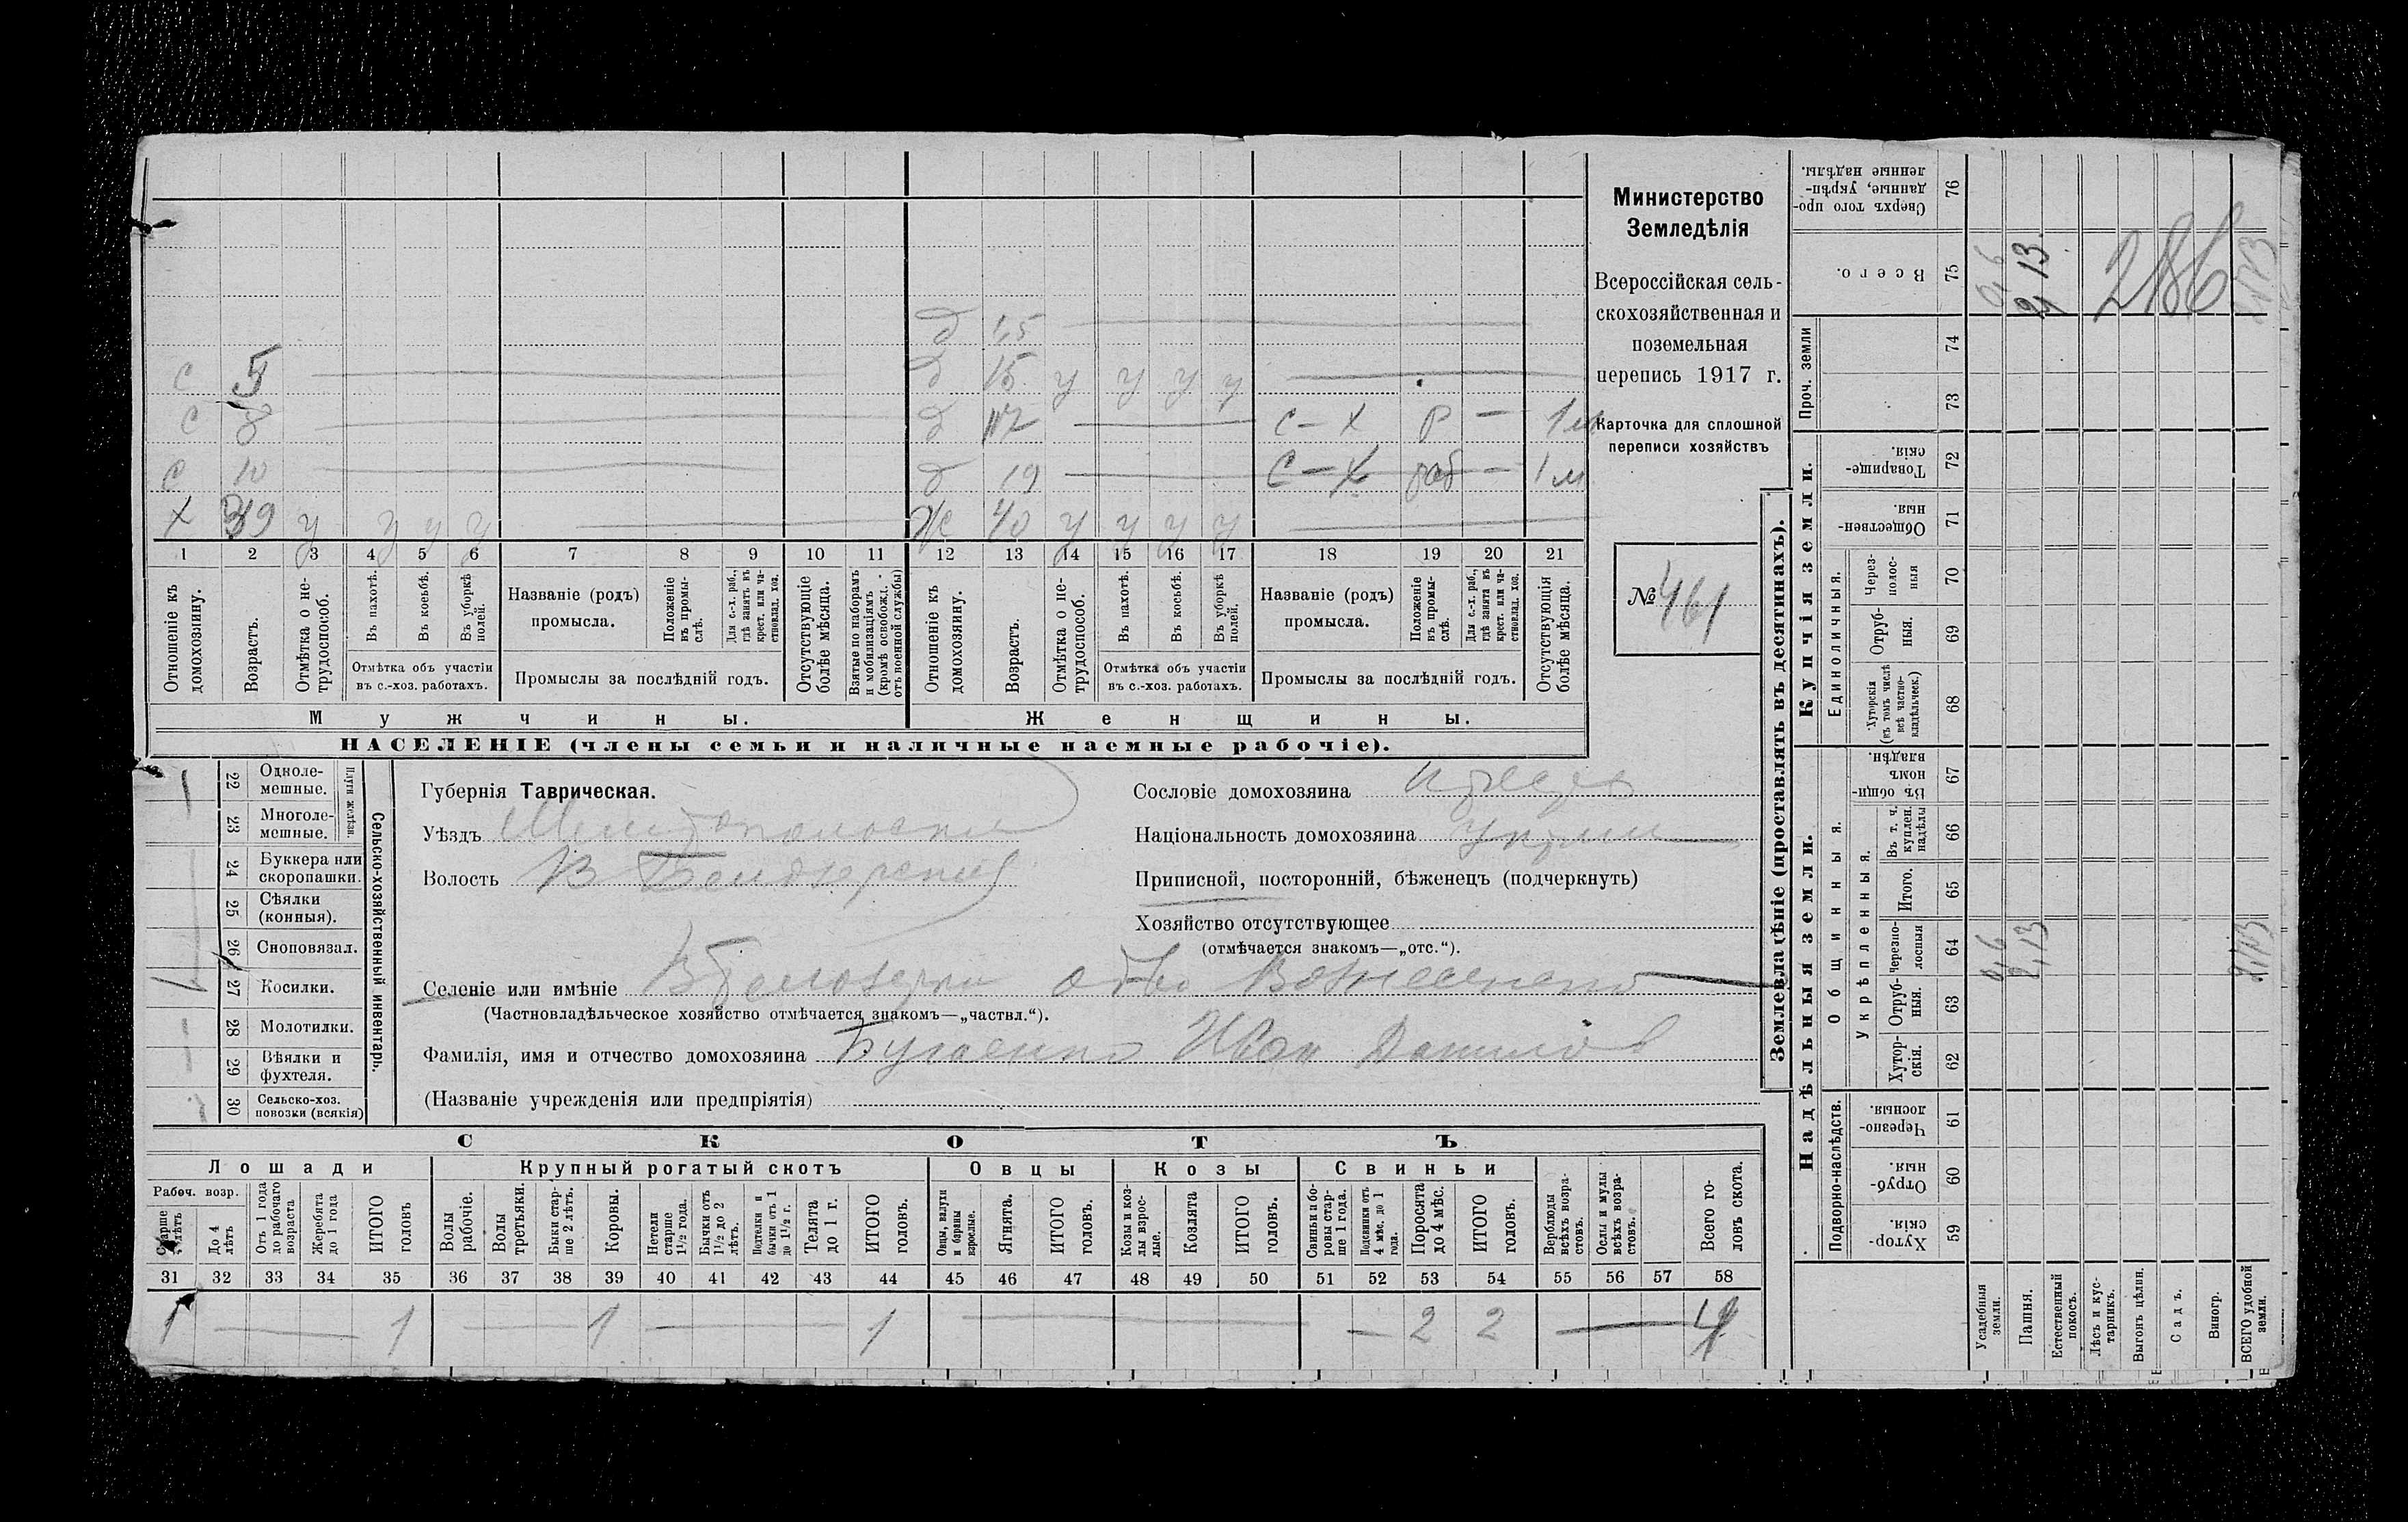 Министерство
Земледѣлія
Всероссійская сель-
скохозяйственная и
поземельная
перепись 1917 г.
Карточка для сплошной
переписи хозяйствъ
№ 461
д 1,5
с 5 д 15 у у у у
с 8 д 12 с-х р — 1 м
с 10 д 19 с-х раб — 1 м
х 39 у у у у ж 40 у у у у
1 2 3 4 5 6 7 8 9 10 11 12 13 14 15 16 17 18 19 20 21
Отношеніе къ домохозяину.
Возрастъ.
Отмѣтка о не-трудоспособ.
Въ пахотѣ.
Въ косьбѣ.
Въ уборкѣ полей.
Отмѣтка объ участіи
въ с.-хоз. работахъ.
Названіе (родъ)
промысла.
Положеніе въ промы-слѣ.
Для с.-х. раб., гдѣ занятъ въ крест. или ча-стновлад. хоз.
Промыслы за послѣдній годъ.
Отсутствующіе болѣе мѣсяца.
Взятые по наборамъ и мобилизаціямъ (кромѣ освобожд. отъ военной службы)
Отношеніе къ домохозяину.
Возрастъ.
Отмѣтка о не-трудоспособ.
Въ пахотѣ.
Въ косьбѣ.
Въ уборкѣ полей.
Отмѣтка объ участіи
въ с.-хоз. работахъ.
Названіе (родъ)
промысла.
Положеніе въ промы-слѣ.
Для с.-х. раб., гдѣ занята въ крест. или ча-стновлад. хоз.
Промыслы за послѣдній годъ.
Отсутствующія болѣе мѣсяца.
Мужчины.
Женщины.
НАСЕЛЕНІЕ (члены семьи и наличные наемные рабочіе).
Сельско-хозяйственный инвентарь.
Плуги желѣзн.
22 Одноле-мешные. 1
23 Многоле-мешные.
24 Буккера или скоропашки.
25 Сѣялки (конныя).
26 Сноповязал.
27 Косилки.
28 Молотилки.
29 Вѣялки и фухтеля.
30 Сельско-хоз. повозки (всякія)
Губернія Таврическая.
Уѣздъ Мелитопольскій
Волость В Белозерская
Селеніе или имѣніе В Белозерка
(Частновладѣльческое хозяйство отмѣчается знакомъ—„частвл.“).
Фамилія, имя и отчество домохозяина Бугаенко Иван Данилов
(Названіе учрежденія или предпріятія)
Сословіе домохозяина
Національность домохозяина
Приписной, посторонній, бѣженецъ (подчеркнуть)
Хозяйство отсутствующее
(отмѣчается знакомъ—„отс.“).
СКОТЪ
Лошади
Крупный рогатый скотъ
Овцы
Козы
Свиньи
Рабоч. возр.
Старше 4 лѣтъ
До 4 лѣтъ
Отъ 1 года до рабочаго возраста
Жеребята до 1 года
ИТОГО головъ
Волы рабочіе.
Волы третьяки.
Быки стар-ше 2 лѣтъ.
Коровы.
Нетели старше 1½ года.
Бычки отъ 1½ до 2 лѣтъ.
Подтелки и бычки отъ 1 до 1½ г.
Телята до 1 г.
ИТОГО головъ.
Овцы, валухи и бараны взрослые.
Ягнята.
ИТОГО головъ.
Козы и коз-лы взрос-лые.
Козлята
ИТОГО головъ.
Свиньи и бо-ровы стар-ше 1 года.
Подсвинки отъ 4 мѣс. до 1 года.
Поросята до 4 мѣс.
ИТОГО головъ.
Верблюды всѣхъ возра-стовъ.
Ослы и мулы всѣхъ возра-стовъ.
Всего го-ловъ скота.
31 32 33 34 35 36 37 38 39 40 41 42 43 44 45 46 47 48 49 50 51 52 53 54 55 56 57 58
1 — 1 — 1 — 1 — — 2 2 — 4
Землевладѣніе (проставлять въ десятинахъ).
Надѣльныя земли.
Купчія земли.
Проч. земли
Подворно-наслѣдств.
Общинныя.
Укрѣпленныя.
Единоличныя.
Хутор-скія. 59
Отруб-ныя. 60
Черезпо-лосныя. 61
Хутор-скія. 62
Отруб-ныя. 63
черезпо-лосныя 64
Итого. 65
Въ т. ч. куплен. надѣлы 66
Въ общи-номъ владѣн. 67
Хуторскія (въ томъ числѣ всѣ частно-владѣльческ.) 68
Отруб-ныя. 69
Через-полос-ныя 70
Обществен-ныя. 71
Товарище-скія. 72
73
74
Всего. 75
Сверхъ того про-данные, укрѣп-ленные надѣлы. 76
Усадебныя земли. 0,6 0,6
Пашня. 2,13 2,13
Естественный покосъ.
Лѣсъ и кус-тарникъ.
Выгонъ цѣлин.
Садъ.
Виногр.
ВСЕГО удобной земли.
286